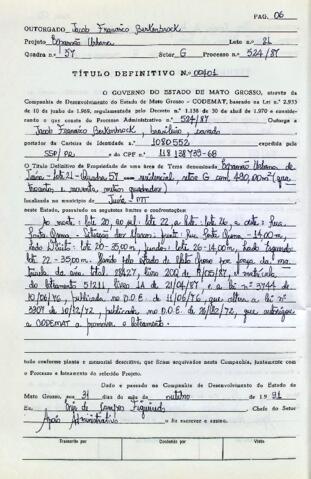 PAG. 06
OUTORGADO Jacob Francisco Berkenbrock
Projeto Expansão Urbana Lote n.º 21
Quadra n.º 57 Setor G Processo n.º 524/87
TÍTULO DEFINITIVO N.º 00401
O GOVERNO DO ESTADO DE MATO GROSSO, através da
Companhia de Desenvolvimento do Estado de Mato Grosso - CODEMAT, baseado na Lei n.º 2.933
10 de junho de 1969, regulamentado pelo Decreto n.º 1.138 de 30 de abril de 1970 e considerando
o que consta do Processo Administrativo n.º 524/87 Outorga a
Jacob Francisco Berkenbrock, brasileiro, casado
portador da Carteira de Identidade n.º 1080552 expedida pela
SSP/PR e do CPF n.º 118 138 739-68
O Título Definitivo de Propriedade de uma área de Terra denominada Expansão Urbana de
Juína - lote 21 - Quadra 57 com residencial, setor G com 490,00m² (quatrocentos e noventa metros quadrados)
localizada no município de Juína - MT
neste Estado, possuindo os seguintes limites e confrontações:
Ao norte: lote 20, ao sul: lote 22, a leste: lote 26 e oeste: Rua
14,00m,
lado direito: lote 20 - 35,00m, fundos: lote 26 - 14,00m, lado esquerdo
lote 22 - 35,00m. pelo estado de Mato Grosso por força da
matrícula da área total 28427, livro 2DQ de 11/05/87, e matrícula
do loteamento 51211, livro 1A de 21/04/87 e a lei nº 3744 de
10/06/76, publicada no D.O.E. de 11/06/76, que altera a lei nº
3307 de 10/12/72, publicada no D.O.E. de 26/12/72, que autorizou
a CODEMAT a promover o loteamento.
tudo conforme planta e memorial descritivo, que ficam arquivados nesta Companhia, juntamente com
o Processo e loteamento do referido Projeto.
Dado e passado na Companhia de Desenvolvimento do Estado de
Mato Grosso, aos 31 dias do mês de outubro de 1991
Eu, de Campos Figueiredo Chefe do Setor
Apoio Administrativo o fiz escrever e assino.
Transcrito por Conferido por Visto